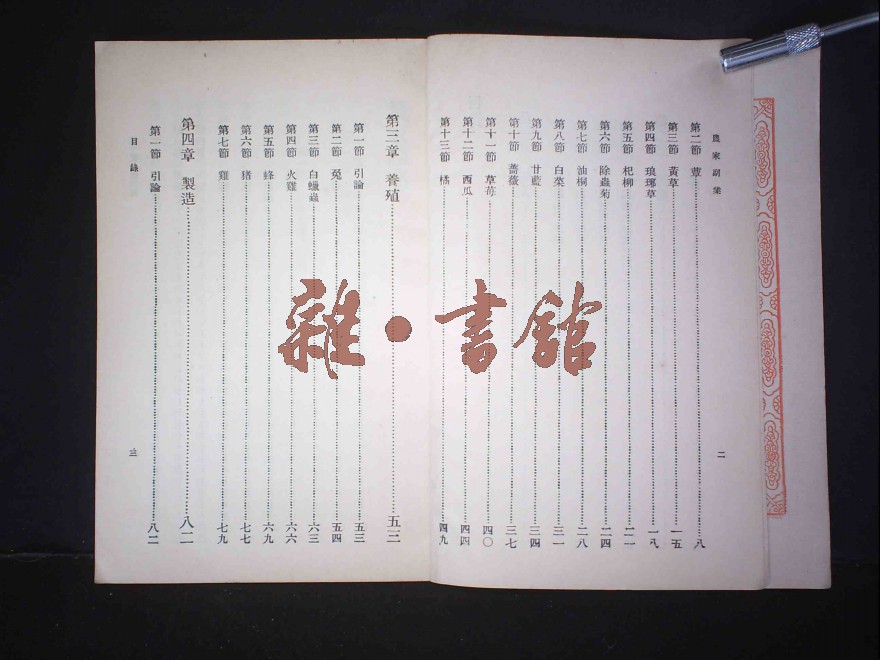 農家副業
第二節 蕈……八
第三節 黃草……一五
第四節 琅琊草……一八
第五節 杞柳……二一
第六節 除蟲菊……二四
第七節 油桐……二八
第八節 白菜……三一
第九節 甘藍……三四
第十節 薔薇……三七
第十一節 草莓……四〇
第十二節 西瓜……四四
第十三節 橘……四九
二
第三章 養殖……五三
第一節 引論……五三
第二節 兔……五四
第三節 白蠟蟲……六三
第四節 火雞……六六
第五節 蜂……六九
第六節 豬……七七
第七節 雞……七九
第四章 製造……八二
第一節 引論……八二
目錄
三
雜·書館